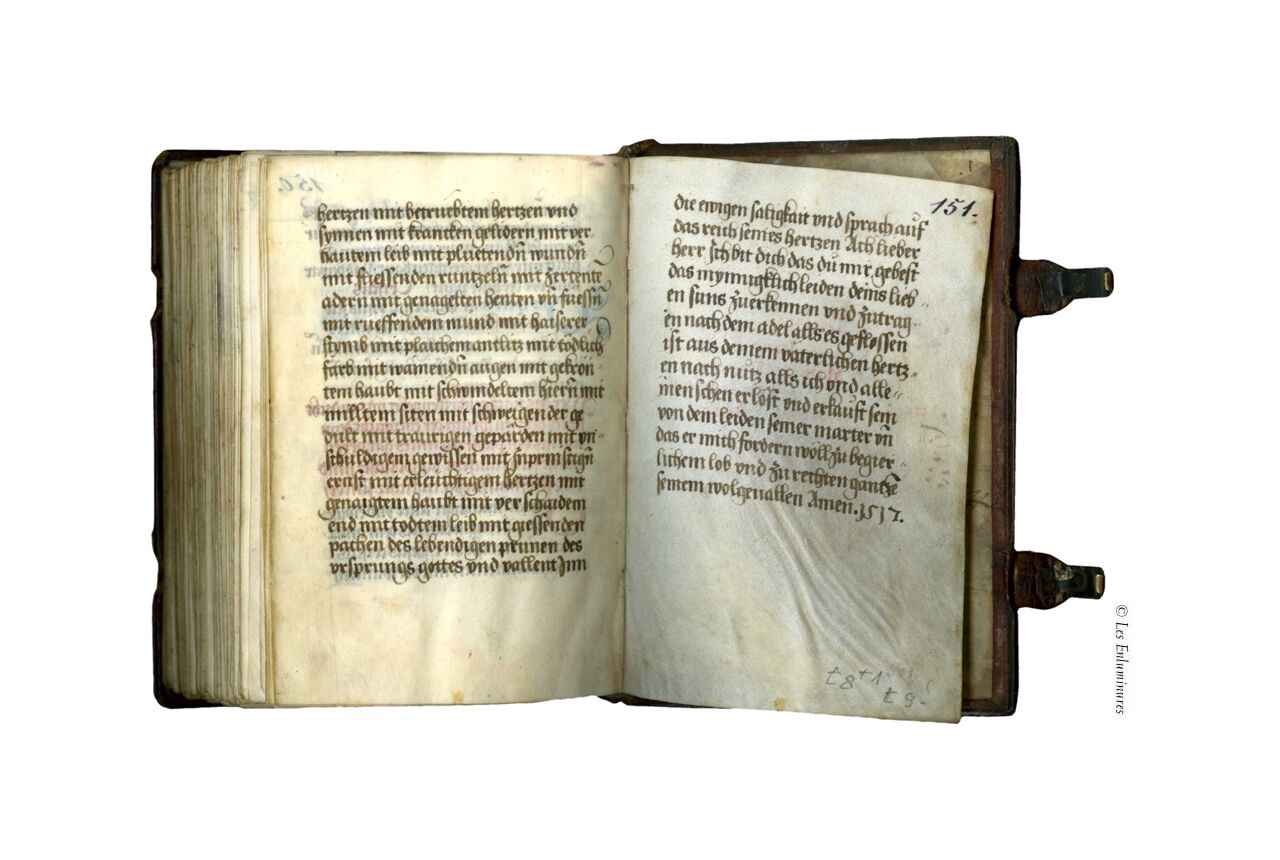 hertzen mit betruebtem hertzen vnd
synnen mit krancken gelidern mit ver
hautem leib mit pluetendn̄ wundn̄
mit fliessenden runtzeln̄ mit zertente
adern mit genagelten henten vn̄ fuessn̄
mit rueffendem mund mit haiserer
stymb mit plaichem antlitz mit tödlich
farb mit wainendn̄ augen mit gekrön
tem haubt mit schwindeltem hiern̄ mit
milltem siten mit schweigender ge-
dult mit traurigen gepärden mit vn-
schuldigem gewissen mit
ernst mit erleuchtigem hertzen mit
genaigtem haubt mit verschaident
end mit todtem leib mit giessenden
pächen des lebendigen prunen des
vrsprungs gottes vnd vallent Inn
151.
die ewigen saligkait vnd sprach auf
das reich seines hertzen Ach lieber
herr Ich bit dich das du mir gebest
das mynnigklich leiden deins lieb-
en suns zuerkennen vnd zutrag-
en nach dem adel alls es geflossen
ist aus deinem väterlichen hertz-
en nach nutz alls ich vnd alle-
menschen erlöst vnd erkauft sein
von dem leiden seiner marter vn̄
das er mich fordern wöll zu begier-
lichem lob vnd zu rechten gantze
seinem wolgeuallen Amen. 1517.
t8+1
t 9-
© Les Enluminures